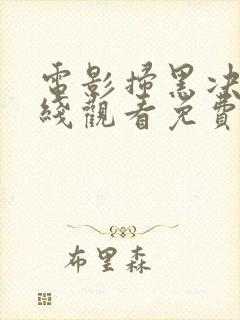 電影掃黑决
綫觀看免費
布里森